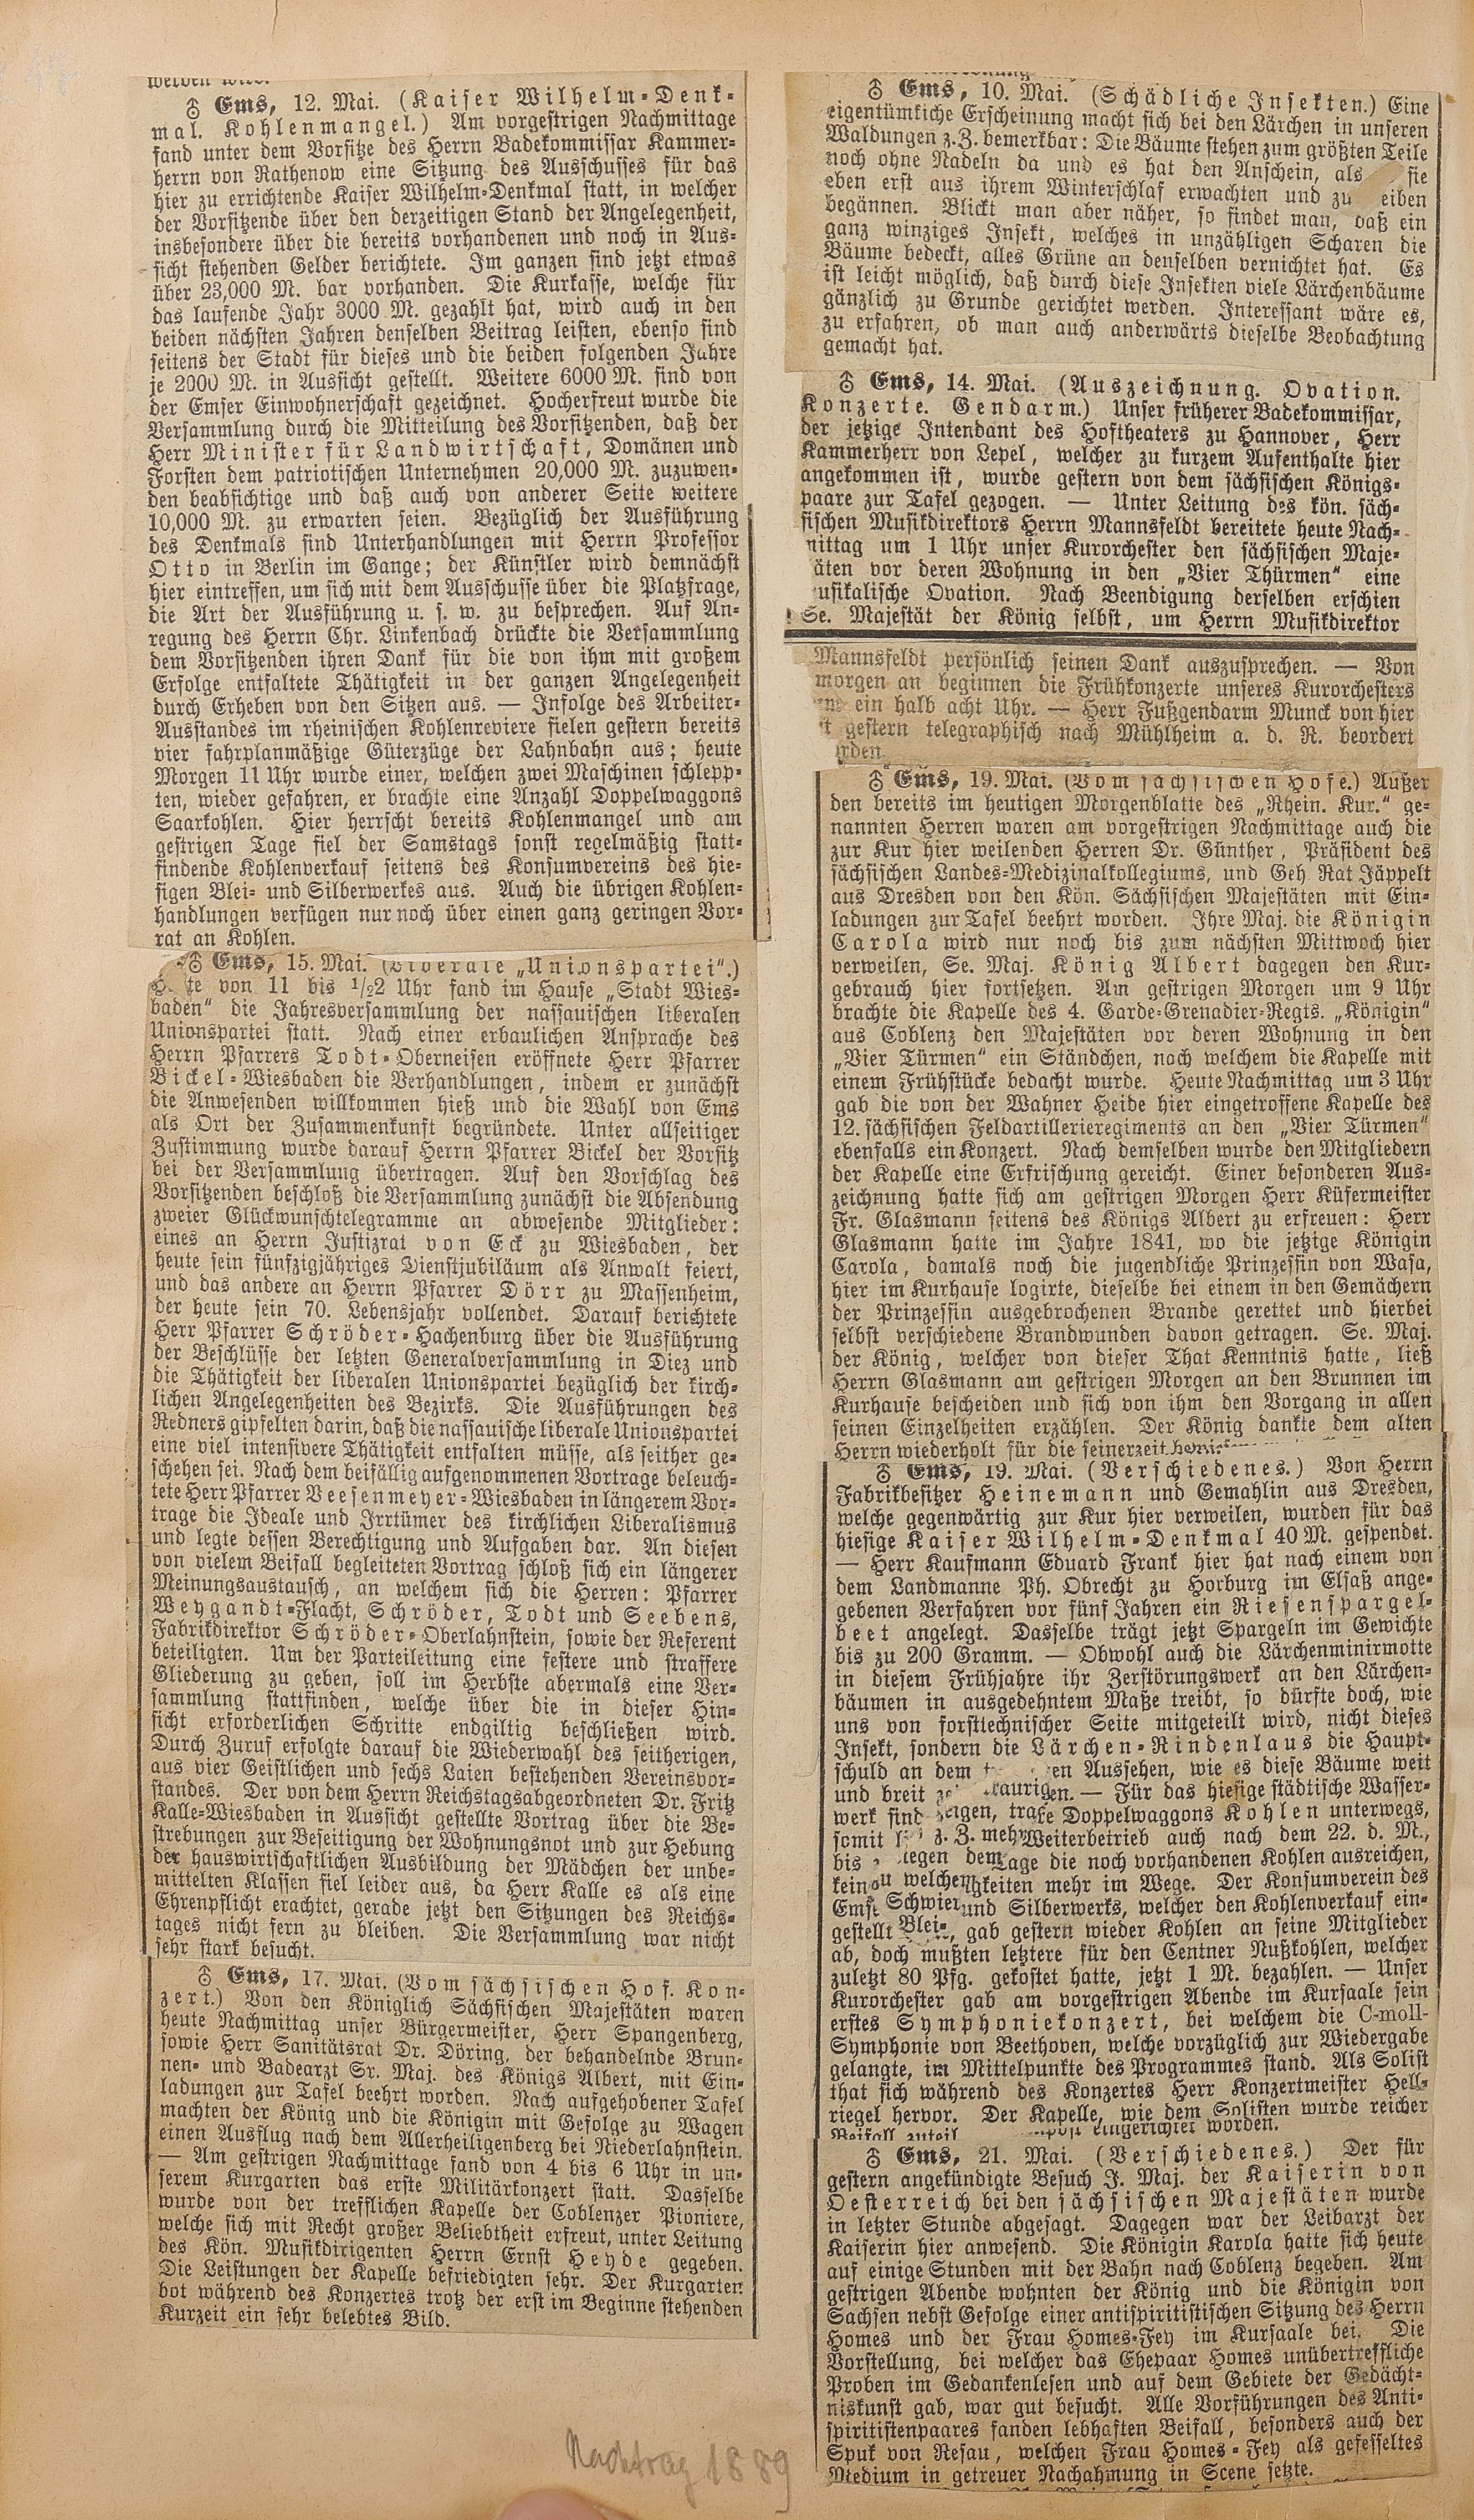 ♁ Ems, 12. Mai. (Kaiser Wilhelm-Denk-
mal. Kohlenmangel.) Am vorgestrigen Nachmittage
fand unter dem Vorsitze des Herrn Badekommissar Kammer-
herrn von Rathenow eine Sitzung des Ausschusses für das
hier zu errichtende Kaiser Wilhelm-Denkmal statt, in welcher
der Vorsitzende über den derzeitigen Stand der Angelegenheit,
insbesondere über die bereits vorhandenen und noch in Aus-
sicht stehenden Gelder berichtete. Im ganzen sind jetzt etwas
über 23,000 M. bar vorhanden. Die Kurkasse, welche für
das laufende Jahr 3000 M. gezahlt hat, wird auch in den
beiden nächsten Jahren denselben Beitrag leisten, ebenso sind
seitens der Stadt für dieses und die beiden folgenden Jahre
je 2000 M. in Aussicht gestellt. Weitere 6000 M. sind von
der Emser Einwohnerschaft gezeichnet. Hocherfreut wurde die
Versammlung durch die Mitteilung des Vorsitzenden, daß der
Herr Minister für Landwirtschaft, Domänen und
Forsten dem patriotischen Unternehmen 20,000 M. zuzuwen-
den beabsichtige und daß auch von anderer Seite weitere
10,000 M. zu erwarten seien. Bezüglich der Ausführung
des Denkmals sind Unterhandlungen mit Herrn Professor
Otto in Berlin im Gange; der Künstler wird demnächst
hier eintreffen, um sich mit dem Ausschusse über die Platzfrage,
die Art der Ausführung u. s. w. zu besprechen. Auf An-
regung des Herrn Chr. Linkenbach drückte die Versammlung
dem Vorsitzenden ihren Dank für die von ihm mit großem
Erfolge entfaltete Thätigkeit in der ganzen Angelegenheit
durch Erheben von den Sitzen aus. — Infolge des Arbeiter-
Ausstandes im rheinischen Kohlenreviere fielen gestern bereits
vier fahrplanmäßige Güterzüge der Lahnbahn aus; heute
Morgen 11 Uhr wurde einer, welchen zwei Maschinen schlepp-
ten, wieder gefahren, er brachte eine Anzahl Doppelwaggons
Saarkohlen. Hier herrscht bereits Kohlenmangel und am
gestrigen Tage fiel der Samstags sonst regelmäßig statt-
findende Kohlenverkauf seitens des Konsumvereins des hie-
sigen Blei- und Silberwerkes aus. Auch die übrigen Kohlen-
handlungen verfügen nur noch über einen ganz geringen Vor-
rat an Kohlen.
♁ Ems, 15. Mai. (Liberale „Unionspartei“.)
H te von 11 bis 1/22 Uhr fand im Hause „Stadt Wies-
baden“ die Jahresversammlung der nassauischen liberalen
Unionspartei statt. Nach einer erbaulichen Ansprache des
Herrn Pfarrers Todt-Oberneisen eröffnete Herr Pfarrer
Bickel-Wiesbaden die Verhandlungen, indem er zunächst
die Anwesenden willkommen hieß und die Wahl von Ems
als Ort der Zusammenkunft begründete. Unter allseitiger
Zustimmung wurde darauf Herrn Pfarrer Bickel der Vorsitz
bei der Versammlung übertragen. Auf den Vorschlag des
Vorsitzenden beschloß die Versammlung zunächst die Absendung
zweier Glückwunschtelegramme an abwesende Mitglieder:
eines an Herrn Justizrat von Eck zu Wiesbaden, der
heute sein fünfzigjähriges Dienstjubiläum als Anwalt feiert,
und das andere an Herrn Pfarrer Dörr zu Massenheim,
der heute sein 70. Lebensjahr vollendet. Darauf berichtete
Herr Pfarrer Schröder-Hachenburg über die Ausführung
der Beschlüsse der letzten Generalversammlung in Diez und
die Thätigkeit der liberalen Unionspartei bezüglich der kirch-
lichen Angelegenheiten des Bezirks. Die Ausführungen des
Redners gipfelten darin, daß die nassauische liberale Unionspartei
eine viel intensivere Thätigkeit entfalten müsse, als seither ge-
schehen sei. Nach dem beifällig aufgenommenen Vortrage beleuch-
tete Herr Pfarrer Veesenmeyer-Wiesbaden in längerem Vor-
trage die Ideale und Irrtümer des kirchlichen Liberalismus
und legte dessen Berechtigung und Aufgaben dar. An diesen
von vielem Beifall begleiteten Vortrag schloß sich ein längerer
Meinungsaustausch, an welchem sich die Herren: Pfarrer
Weygandt-Flacht, Schröder, Todt und Seebens,
Fabrikdirektor Schröder-Oberlahnstein, sowie der Referent
beteiligten. Um der Parteileitung eine festere und straffere
Gliederung zu geben, soll im Herbste abermals eine Ver-
sammlung stattfinden, welche über die in dieser Hin-
sicht erforderlichen Schritte endgiltig beschließen wird.
Durch Zuruf erfolgte darauf die Wiederwahl des seitherigen,
aus vier Geistlichen und sechs Laien bestehenden Vereinsvor-
standes. Der von dem Herrn Reichstagsabgeordneten Dr. Fritz
Kalle-Wiesbaden in Aussicht gestellte Vortrag über die Be-
strebungen zur Beseitigung der Wohnungsnot und zur Hebung
der hauswirtschaftlichen Ausbildung der Mädchen der unbe-
mittelten Klassen fiel leider aus, da Herr Kalle es als eine
Ehrenpflicht erachtet, gerade jetzt den Sitzungen des Reichs-
tages nicht fern zu bleiben. Die Versammlung war nicht
sehr stark besucht.
♁ Ems, 17. Mai. (Vom sächsischen Hof. Kon-
zert.) Von den Königlich Sächsischen Majestäten waren
heute Nachmittag unser Bürgermeister, Herr Spangenberg,
sowie Herr Sanitätsrat Dr. Döring, der behandelnde Brun-
nen- und Badearzt Sr. Maj. des Königs Albert, mit Ein-
ladungen zur Tafel beehrt worden. Nach aufgehobener Tafel
machten der König und die Königin mit Gefolge zu Wagen
einen Ausflug nach dem Allerheiligenberg bei Niederlahnstein.
— Am gestrigen Nachmittage fand von 4 bis 6 Uhr in un-
serem Kurgarten das erste Militärkonzert statt. Dasselbe
wurde von der trefflichen Kapelle der Coblenzer Pioniere,
welche sich mit Recht großer Beliebtheit erfreut, unter Leitung
des Kön. Musikdirigenten Herrn Ernst Heyde gegeben.
Die Leistungen der Kapelle befriedigten sehr. Der Kurgarten
bot während des Konzertes trotz der erst im Beginne stehenden
Kurzeit ein sehr belebtes Bild.
Nachtrag 1889
♁ Ems, 10. Mai. (Schädliche Insekten.) Eine
eigentümliche Erscheinung macht sich bei den Lärchen in unseren
Waldungen z. Z. bemerkbar: Die Bäume stehen zum größten Teile
noch ohne Nadeln da und es hat den Anschein, als sie
eben erst aus ihrem Winterschlaf erwachten und zu eiben
begännen. Blickt man aber näher, so findet man, daß ein
ganz winziges Insekt, welches in unzähligen Scharen die
Bäume bedeckt, alles Grüne an denselben vernichtet hat. Es
ist leicht möglich, daß durch diese Insekten viele Lärchenbäume
gänzlich zu Grunde gerichtet werden. Interessant wäre es,
zu erfahren, ob man auch anderwärts dieselbe Beobachtung
gemacht hat.
♁ Ems, 14. Mai. (Auszeichnung. Ovation.
Konzerte. Gendarm.) Unser früherer Badekommissar,
der jetzige Intendant des Hoftheaters zu Hannover, Herr
Kammerherr von Lepel, welcher zu kurzem Aufenthalte hier
angekommen ist, wurde gestern von dem sächsischen Königs-
paare zur Tafel gezogen. — Unter Leitung des kön. säch-
sischen Musikdirektors Herrn Mannsfeldt bereitete heute Nach-
mittag um 1 Uhr unser Kurorchester den sächsischen Maje-
äten vor deren Wohnung in den „Vier Thürmen“ eine
usikalische Ovation. Nach Beendigung derselben erschien
Se. Majestät der König selbst, um Herrn Musikdirektor
Mannsfeldt persönlich seinen Dank auszusprechen. — Von
morgen an beginnen die Frühkonzerte unseres Kurorchesters
ein halb acht Uhr. — Herr Fußgendarm Munck von hier
t gestern telegraphisch nach Mühlheim a. d. R. beordert
rden.
♁ Ems, 19. Mai. (Vom sächsischen Hofe.) Außer
den bereits im heutigen Morgenblatte des „Rhein. Kur.“ ge-
nannten Herren waren am vorgestrigen Nachmittage auch die
zur Kur hier weilenden Herren Dr. Günther, Präsident des
sächsischen Landes-Medizinalkollegiums, und Geh. Rat Jäppelt
aus Dresden von den Kön. Sächsischen Majestäten mit Ein-
ladungen zur Tafel beehrt worden. Ihre Maj. die Königin
Carola wird nur noch bis zum nächsten Mittwoch hier
verweilen, Se. Maj. König Albert dagegen den Kur-
gebrauch hier fortsetzen. Am gestrigen Morgen um 9 Uhr
brachte die Kapelle des 4. Garde-Grenadier-Regts. „Königin“
aus Coblenz den Majestäten vor deren Wohnung in den
„Vier Türmen“ ein Ständchen, nach welchem die Kapelle mit
einem Frühstücke bedacht wurde. Heute Nachmittag um 3 Uhr
gab die von der Wahner Heide hier eingetroffene Kapelle des
12. sächsischen Feldartillerieregiments an den „Vier Türmen“
ebenfalls ein Konzert. Nach demselben wurde den Mitgliedern
der Kapelle eine Erfrischung gereicht. Einer besonderen Aus-
zeichnung hatte sich am gestrigen Morgen Herr Küfermeister
Fr. Glasmann seitens des Königs Albert zu erfreuen: Herr
Glasmann hatte im Jahre 1841, wo die jetzige Königin
Carola, damals noch die jugendliche Prinzessin von Wasa,
hier im Kurhause logirte, dieselbe bei einem in den Gemächern
der Prinzessin ausgebrochenen Brande gerettet und hierbei
selbst verschiedene Brandwunden davon getragen. Se. Maj.
der König, welcher von dieser That Kenntnis hatte, ließ
Herrn Glasmann am gestrigen Morgen an den Brunnen im
Kurhause bescheiden und sich von ihm den Vorgang in allen
seinen Einzelheiten erzählen. Der König dankte dem alten
Herrn wiederholt für die seinerzeit
♁ Ems, 19. Mai. (Verschiedenes.) Von Herrn
Fabrikbesitzer Heinemann und Gemahlin aus Dresden,
welche gegenwärtig zur Kur hier verweilen, wurden für das
hiesige Kaiser Wilhelm-Denkmal 40 M. gespendet.
— Herr Kaufmann Eduard Frank hier hat nach einem von
dem Landmanne Ph. Obrecht zu Horburg im Elsaß ange-
gebenen Verfahren vor fünf Jahren ein Riesenspargel-
beet angelegt. Dasselbe trägt jetzt Spargeln im Gewichte
bis zu 200 Gramm. — Obwohl auch die Lärchenminirmotte
in diesem Frühjahre ihr Zerstörungswerk an den Lärchen-
bäumen in ausgedehntem Maße treibt, so dürfte doch, wie
uns von forsttechnischer Seite mitgeteilt wird, nicht dieses
Insekt, sondern die Lärchen-Rindenlaus die Haupt-
schuld an dem t en Aussehen, wie es diese Bäume weit
und breit ze aurigen. — Für das hiesige städtische Wasser-
werk sind eigen, tra e Doppelwaggons Kohlen unterwegs,
somit l z. Z. meh Weiterbetrieb auch nach dem 22. d. M.,
bis iegen dem age die noch vorhandenen Kohlen ausreichen,
kein u welchen gkeiten mehr im Wege. Der Konsumverein des
Ems Schwier und Silberwerks, welcher den Kohlenverkauf ein-
gestellt Blei-, gab gestern wieder Kohlen an seine Mitglieder
ab, doch mußten letztere für den Centner Nußkohlen, welcher
zuletzt 80 Pfg. gekostet hatte, jetzt 1 M. bezahlen. — Unser
Kurorchester gab am vorgestrigen Abende im Kursaale sein
erstes Symphoniekonzert, bei welchem die C-moll-
Symphonie von Beethoven, welche vorzüglich zur Wiedergabe
gelangte, im Mittelpunkte des Programmes stand. Als Solist
that sich während des Konzertes Herr Konzertmeister Hell-
riegel hervor. Der Kapelle, wie dem Solisten wurde reicher
Beifall zuteil. eingerichtet worden.
♁ Ems, 21. Mai. (Verschiedenes.) Der für
gestern angekündigte Besuch J. Maj. der Kaiserin von
Oesterreich bei den sächsischen Majestäten wurde
in letzter Stunde abgesagt. Dagegen war der Leibarzt der
Kaiserin hier anwesend. Die Königin Karola hatte sich heute
auf einige Stunden mit der Bahn nach Coblenz begeben. Am
gestrigen Abende wohnten der König und die Königin von
Sachsen nebst Gefolge einer antispiritistischen Sitzung des Herrn
Homes und der Frau Homes-Fey im Kursaale bei. Die
Vorstellung, bei welcher das Ehepaar Homes unübertreffliche
Proben im Gedankenlesen und auf dem Gebiete der Gedächt-
niskunst gab, war gut besucht. Alle Vorführungen des Anti-
spiritistenpaares fanden lebhaften Beifall, besonders auch der
Spuk von Resau, welchen Frau Homes-Fey als gefesseltes
Medium in getreuer Nachahmung in Scene setzte.